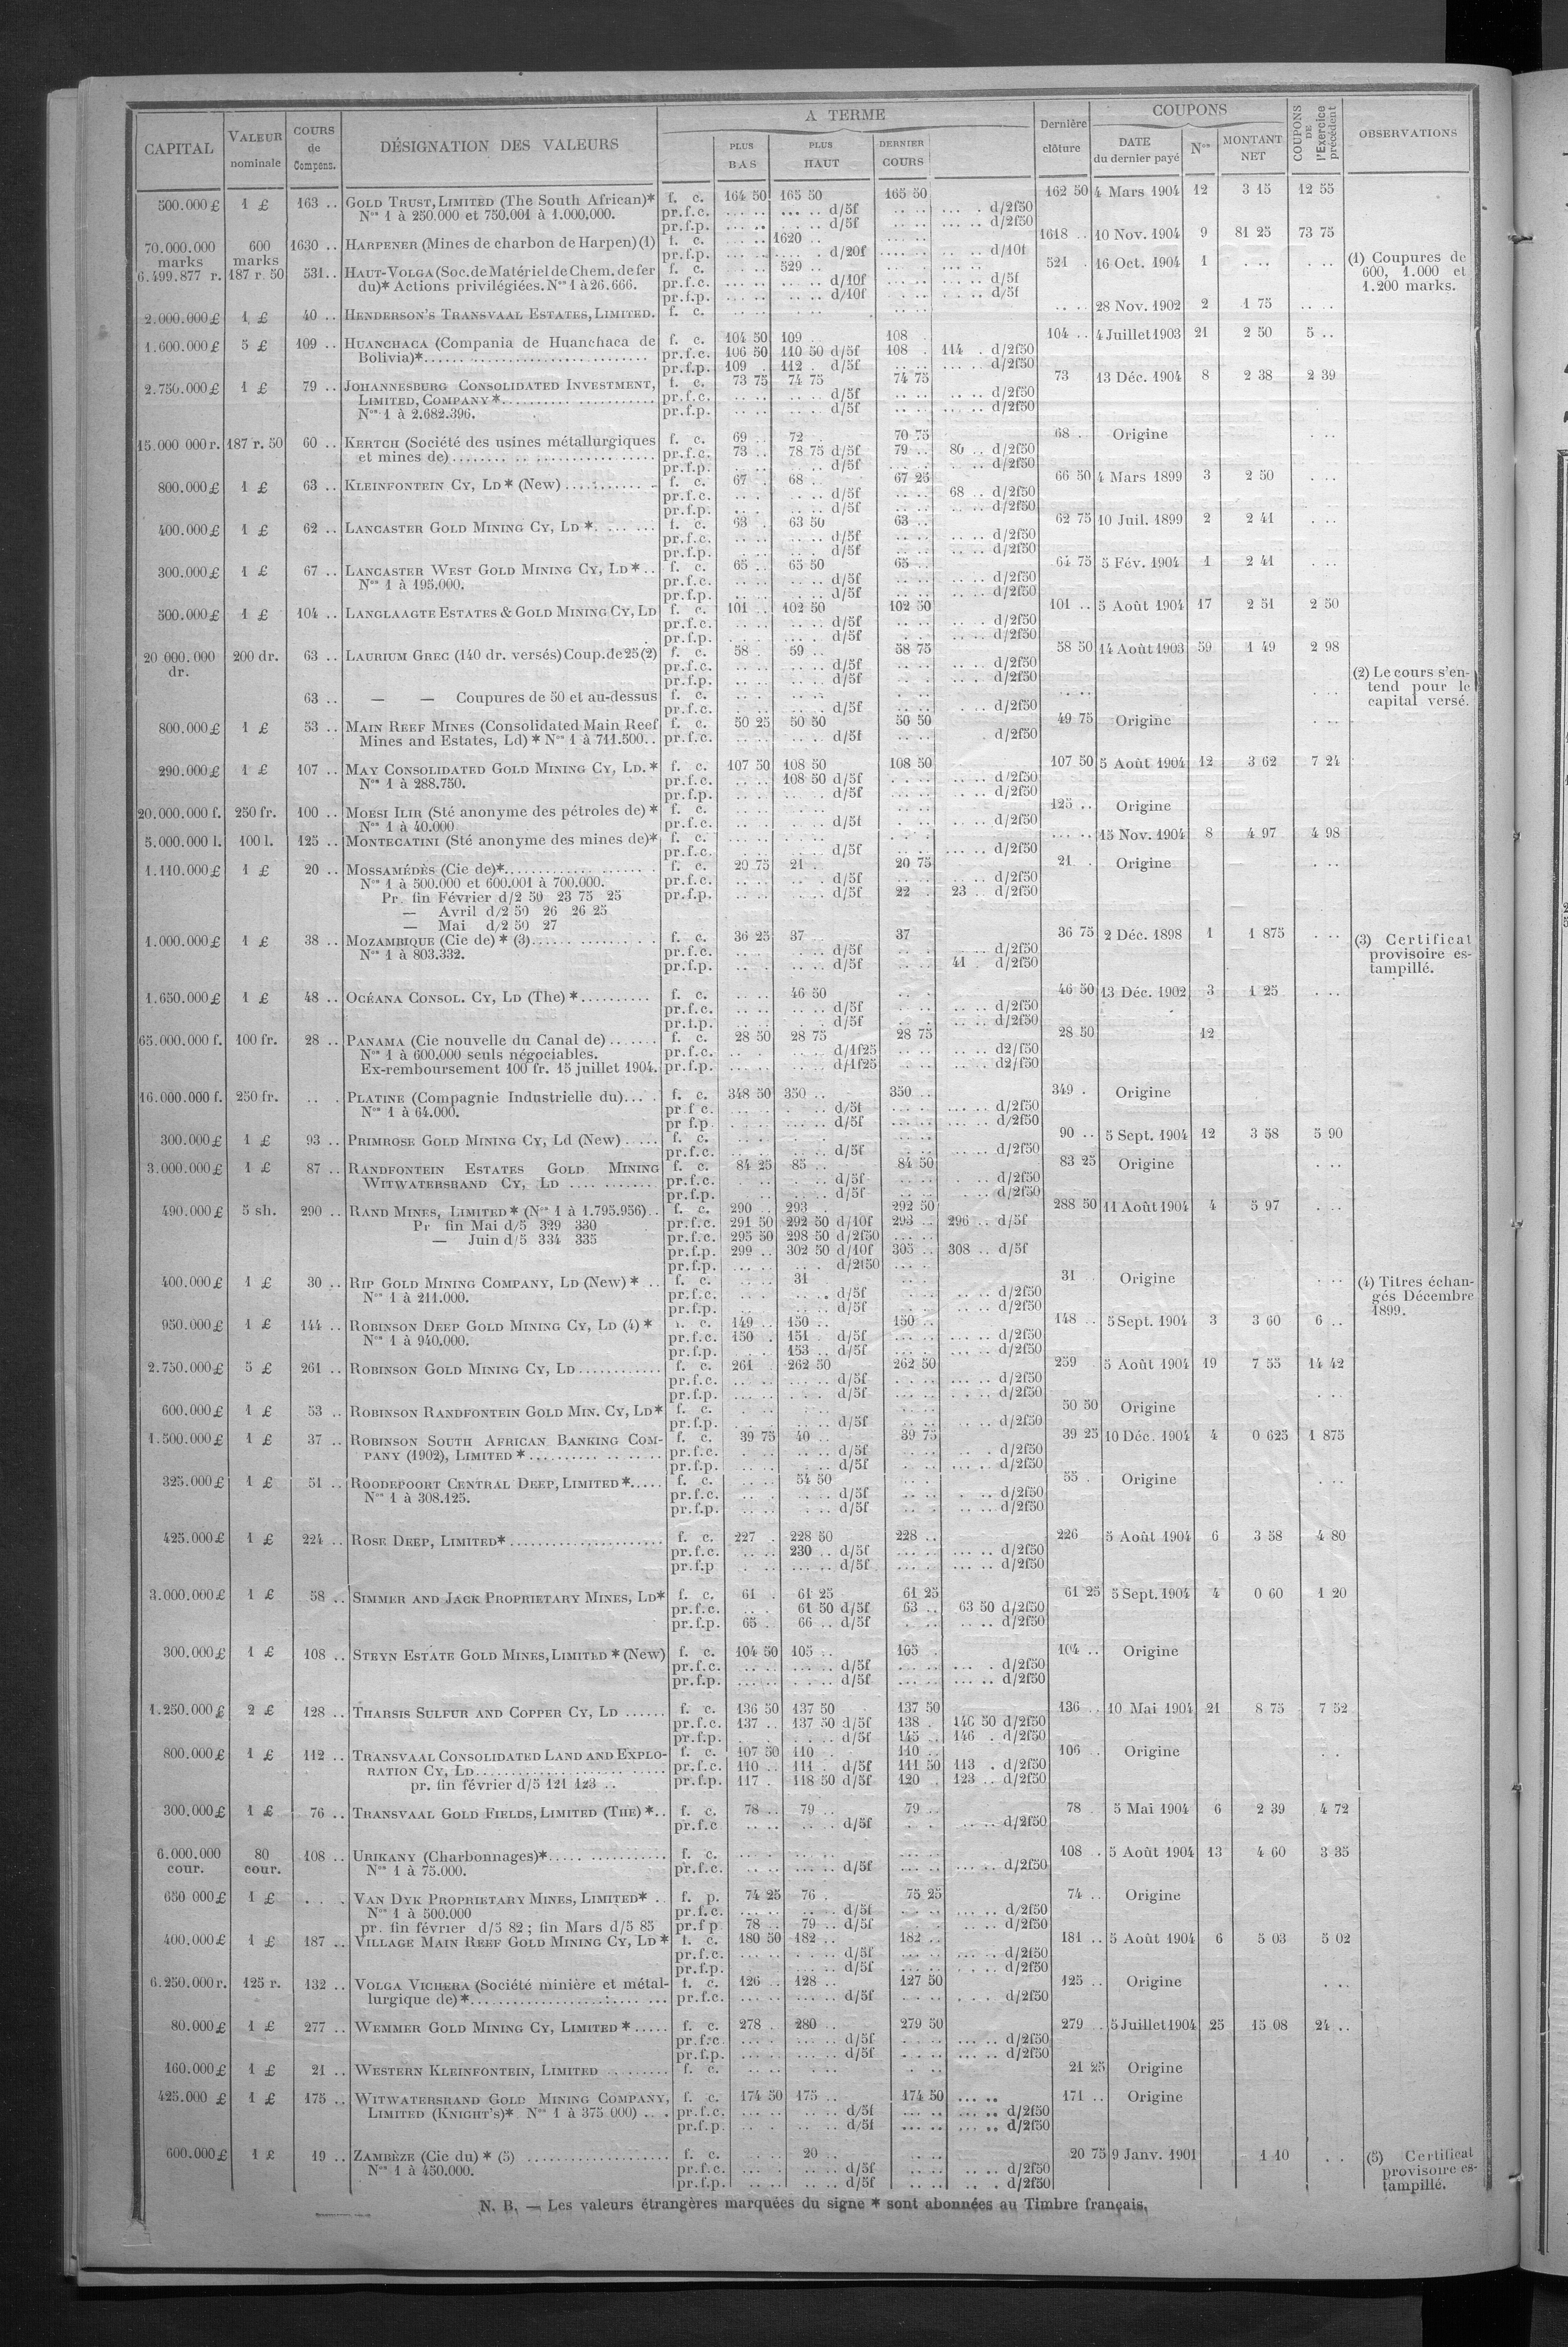 CAPITAL VALEUR nominale COURS de Compens. DÉSIGNATION DES VALEURS A TERME PLUS BAS PLUS HAUT DERNIER COURS Dernière clôture COUPONS DATE du dernier payé Nos MONTANT NET COUPONS DE l'Exercice précédent OBSERVATIONS
500.000 £ 1 £ 163 .. GOLD TRUST, LIMITED (The South African)* f. c. 164 50 165 50 165 50 162 50 4 Mars 1904 12 3 15 12 55
Nos 1 à 250.000 et 750.001 à 1.000.000. pr.f.c. d/5f d/2f50
pr.f.p. d/5f d/2f50
70.000.000 marks 600 marks 1630 .. HARPENER (Mines de charbon de Harpen)(1) f. c. 1620 .. 1618 .. 10 Nov. 1904 9 81 25 73 75
pr.f.p. d/20f d/10f
6.499.877 r. 187 r. 50 531.. HAUT-VOLGA (Soc. de Matériel de Chem. de fer f. c. 529 .. 521 . 16 Oct. 1904 1 (1) Coupures de 600, 1.000 et 1.200 marks.
du)* Actions privilégiées. Nos 1 à 26.666. pr.f.c. d/10f d/5f
pr.f.p. d/10f d/5f
2.000.000 £ 1 £ 40 .. HENDERSON'S TRANSVAAL ESTATES, LIMITED. f. c. 28 Nov. 1902 2 1 75
1.600.000 £ 5 £ 109 .. HUANCHACA (Compania de Huanchaca de f. c. 104 50 109 . 108 . 104 .. 4 Juillet 1903 21 2 50 5 ..
Bolivia)* pr.f.c. 106 50 110 50 d/5f 108 . 114 . d/2f50
pr.f.p. 109 . 112 . d/5f d/2f50
2.750.000 £ 1 £ 79 .. JOHANNESBURG CONSOLIDATED INVESTMENT, f. c. 73 75 74 75 74 75 73 13 Déc. 1904 8 2 38 2 39
LIMITED, COMPANY* pr.f.c. d/5f d/2f50
Nos 1 à 2.682.396. pr.f.p. d/5f d/2f50
15.000 000 r. 187 r. 50 60 .. KERTCH (Société des usines métallurgiques f. c. 69 .. 72 . 70 75 68 . Origine
et mines de) pr.f.c. 73 .. 78 75 d/5f 79 .. 80 .. d/2f50
pr.f.p. d/5f d/2f50
800.000 £ 1 £ 63 .. KLEINFONTEIN CY, LD* (New) f. c. 67 . 68 .. 67 25 66 50 4 Mars 1899 3 2 50
pr.f.c. d/5f 68 .. d/2f50
pr.f.p. d/5f d/2f50
400.000 £ 1 £ 62 .. LANCASTER GOLD MINING CY, LD * f. c. 63 . 63 50 63 .. 62 75 10 Juil. 1899 2 2 41
pr.f.c. d/5f d/2f50
pr.f.p. d/5f d/2f50
300.000 £ 1 £ 67 .. LANCASTER WEST GOLD MINING CY, LD* f. c. 65 .. 65 50 65 .. 64 75 5 Fév. 1904 1 2 41
Nos 1 à 195.000. pr.f.c. d/5f d/2f50
pr.f.p. d/5f d/2f50
500.000 £ 1 £ 104 .. LANGLAAGTE ESTATES & GOLD MINING CY, LD f. c. 101 .. 102 50 102 50 101 .. 5 Août 1904 17 2 51 2 50
pr.f.c. d/5f d/2f50
pr.f.p. d/5f d/2f50
20 000.000 dr. 200 dr. 63 .. LAURIUM GREC (140 dr. versés) Coup. de 25 (2) f. c. 58 . 59 .. 58 75 58 50 14 Août 1903 59 1 49 2 98
pr.f.c. d/5f d/2f50
pr.f.p. d/5f d/2f50 (2) Le cours s'entend pour le capital versé.
63 .. — — Coupures de 50 et au-dessus f. c.
pr.f.c. d/5f d/2f50
800.000 £ 1 £ 53 .. MAIN REEF MINES (Consolidated Main Reef f. c. 50 25 50 50 50 50 49 75 Origine
Mines and Estates, Ld) * Nos 1 à 711.500.. pr.f.c. d/5f d/2f50
290.000 £ 1 £ 107 .. MAY CONSOLIDATED GOLD MINING CY, LD. * f. c. 107 50 108 50 108 50 107 50 5 Août 1904 12 3 62 7 24
Nos 1 à 288.750. pr.f.c. 108 50 d/5f d/2f50
pr.f.p. d/5f d/2f50
20.000.000 f. 250 fr. 100 .. MOESI ILIR (Sté anonyme des pétroles de) * f. c. 125 .. Origine
Nos 1 à 40.000 pr.f.c. d/5f d/2f50
5.000.000 l. 100 l. 125 .. MONTECATINI (Sté anonyme des mines de)* f. c. 15 Nov. 1904 8 4 97 4 98
pr.f.c. d/5f d/2f50
1.110.000 £ 1 £ 20 .. MOSSAMÉDÈS (Cie de)* f. c. 20 75 21 . 20 75 21 . Origine
Nos 1 à 500.000 et 600.001 à 700.000. pr.f.c. d/5f d/2f50
Pr. fin Février d/2 50 23 75 25 pr.f.p. d/5f 22 . 23 .. d/2f50
— Avril d/2 50 26 26 25
— Mai d/2 50 27
1.000.000 £ 1 £ 38 .. MOZAMBIQUE (Cie de) * (3) f. c. 36 25 37 .. 37 36 75 2 Déc. 1898 1 1 875 (3) Certificat provisoire estampillé.
Nos 1 à 803.332. pr.f.c. d/5f d/2f50
pr.f.p. d/5f 41 . d/2f50
1.650.000 £ 1 £ 48 .. OCÉANA CONSOL. CY, LD (The) * f. c. 46 50 46 50 13 Déc. 1902 3 1 25
pr.f.c. d/5f d/2f50
pr.f.p. d/5f d/2f50
65.000.000 f. 100 fr. 28 .. PANAMA (Cie nouvelle du Canal de) f. c. 28 50 28 75 28 75 28 50 12
Nos 1 à 600.000 seuls négociables. pr.f.c. d/1f25 d2/f50
Ex-remboursement 100 fr. 15 juillet 1904. pr.f.p. d/1f25 d2/f50
16.000.000 f. 250 fr. PLATINE (Compagnie Industrielle du) f. c. 348 50 350 .. 350 .. 349 . Origine
Nos 1 à 64.000. pr f c. d/5f d/2f50
pr f.p. d/5f d/2f50
300.000 £ 1 £ 93 .. PRIMROSE GOLD MINING CY, Ld (New) f. c. 90 .. 5 Sept. 1904 12 3 58 5 90
pr.f.c. d/5f d/2f50
3.000.000 £ 1 £ 87 .. RANDFONTEIN ESTATES GOLD MINING f. c. 84 25 85 .. 84 50 83 25 Origine
WITWATERSRAND CY, LD pr.f.c. d/5f d/2f50
pr.f.p. d/5f d/2f50
490.000 £ 5 sh. 290 .. RAND MINES, LIMITED* (Nos 1 à 1.795.956) f. c. 290 .. 293 . 292 50 288 50 11 Août 1904 4 5 97
Pr fin Mai d/5 329 330 pr.f.c. 291 50 292 50 d/10f 293 .. 296 .. d/5f
— Juin d/5 334 335 pr.f.c. 295 50 298 50 d/2f50
pr.f.p. 299 .. 302 50 d/10f 305 .. 308 .. d/5f
pr.f.p. d/2f50
400.000 £ 1 £ 30 .. RIP GOLD MINING COMPANY, LD (New) * f. c. 31 31 . Origine (4) Titres échangés Décembre 1899.
Nos 1 à 211.000. pr.f.c. d/5f d/2f50
pr.f.p. d/5f d/2f50
950.000 £ 1 £ 144 .. ROBINSON DEEP GOLD MINING CY, LD (4) * f. c. 149 .. 150 .. 150 .. 148 .. 5 Sept. 1904 3 3 60 6 ..
Nos 1 à 940.000. pr.f.c. 150 . 151 . d/5f d/2f50
pr.f.p. 153 .. d/5f d/2f50
2.750.000 £ 5 £ 261 .. ROBINSON GOLD MINING CY, LD f. c. 261 . 262 50 262 50 259 5 Août 1904 19 7 55 14 42
pr.f.c. d/5f d/2f50
pr.f.p. d/5f d/2f50
600.000 £ 1 £ 53 .. ROBINSON RANDFONTEIN GOLD MIN. CY, LD* f. c. 50 50 Origine
pr.f.p. d/5f d/2f50
1.500.000 £ 1 £ 37 .. ROBINSON SOUTH AFRICAN BANKING COM- f. c. 39 75 40 .. 39 75 39 25 10 Déc. 1904 4 0 625 1 875
PANY (1902), LIMITED * pr.f.c. d/5f d/2f50
pr.f.p. d/5f d/2f50
325.000 £ 1 £ 51 .. ROODEPOORT CENTRAL DEEP, LIMITED * f. c. 54 50 55 . Origine
Nos 1 à 308.125. pr.f.c. d/5f d/2f50
pr.f.p. d/5f d/2f50
425.000 £ 1 £ 224 .. ROSE DEEP, LIMITED* f. c. 227 . 228 50 228 .. 226 5 Août 1904 6 3 58 4 80
pr.f.c. 230 .. d/5f d/2f50
pr.f.p d/5f d/2f50
3.000.000 £ 1 £ 58 .. SIMMER AND JACK PROPRIETARY MINES, LD* f. c. 61 . 61 25 61 25 61 25 5 Sept. 1904 4 0 60 1 20
pr.f.c. 61 50 d/5f 63 .. 63 50 d/2f50
pr.f.p. 65 . 66 .. d/5f d/2f50
300.000 £ 1 £ 108 .. STEYN ESTATE GOLD MINES, LIMITED * (New) f. c. 104 50 105 .. 105 . 104 .. Origine
pr.f.c. d/5f d/2f50
pr.f.p. d/5f d/2f50
1.250.000 £ 2 £ 128 .. THARSIS SULFUR AND COPPER CY, LD f. c. 136 50 137 50 137 50 136 .. 10 Mai 1904 21 8 75 7 52
pr.f.c. 137 .. 137 50 d/5f 138 . 146 50 d/2f50
pr.f.p. d/5f 145 .. 146 . d/2f50
800.000 £ 1 £ 112 .. TRANSVAAL CONSOLIDATED LAND AND EXPLO- f. c. 107 50 110 . 110 .. 106 .. Origine
RATION CY, LD pr.f.c. 110 .. 111 . d/5f 111 50 113 . d/2f50
pr. fin février d/5 121 123 .. pr.f.p. 117 . 118 50 d/5f 120 . 123 .. d/2f50
300.000 £ 1 £ 76 .. TRANSVAAL GOLD FIELDS, LIMITED (THE) * f. c. 78 .. 79 .. 79 .. 78 . 5 Mai 1904 6 2 39 4 72
pr.f.c d/5f d/2f50
6.000.000 cour. 80 cour. 108 .. URIKANY (Charbonnages)* f. c. 108 .. 5 Août 1904 13 4 60 3 35
Nos 1 à 75.000. pr.f.c. d/5f d/2f50
650 000 £ 1 £ VAN DYK PROPRIETARY MINES, LIMITED* f. p. 74 25 76 . 75 25 74 .. Origine
Nos 1 à 500.000 pr.f.c. d/5f d/2f50
pr. fin février d/5 82 ; fin Mars d/5 85 pr.f p 78 .. 79 .. d/5f d/2f50
400.000 £ 1 £ 187 .. VILLAGE MAIN REEF GOLD MINING CY, LD * f. c. 180 50 182 .. 182 .. 181 .. 5 Août 1904 6 5 03 5 02
pr.f.c. d/5f d/2f50
pr.f.p. d/5f d/2f50
6.250.000 r. 125 r. 132 .. VOLGA VICHERA (Société minière et métal- f. c. 126 .. 128 .. 127 50 125 .. Origine
lurgique de) * pr.f.c. d/5f d/2f50
80.000 £ 1 £ 277 .. WEMMER GOLD MINING CY, LIMITED * f. c. 278 . 280 .. 279 50 279 5 Juillet 1904 25 15 08 24 ..
pr.f.c d/5f d/2f50
pr.f.p. d/5f d/2f50
160.000 £ 1 £ 21 .. WESTERN KLEINFONTEIN, LIMITED f. c. 21 25 Origine
425.000 £ 1 £ 175 .. WITWATERSRAND GOLD MINING COMPANY, f. c. 174 50 175 .. 174 50 171 .. Origine
LIMITED (KNIGHT'S)* Nos 1 à 375 000) pr.f.c. d/5f d/2f50
pr.f.p. d/5f d/2f50
600.000 £ 1 £ 19 .. ZAMBÈZE (Cie du) * (5) f. c. 20 .. 20 75 9 Janv. 1901 1 10 (5) Certificat provisoire estampillé.
Nos 1 à 450.000. pr.f.c. d/5f d/2f50
pr.f.p. d/5f d/2f50
N. B. — Les valeurs étrangères marquées du signe * sont abonnées au Timbre français.